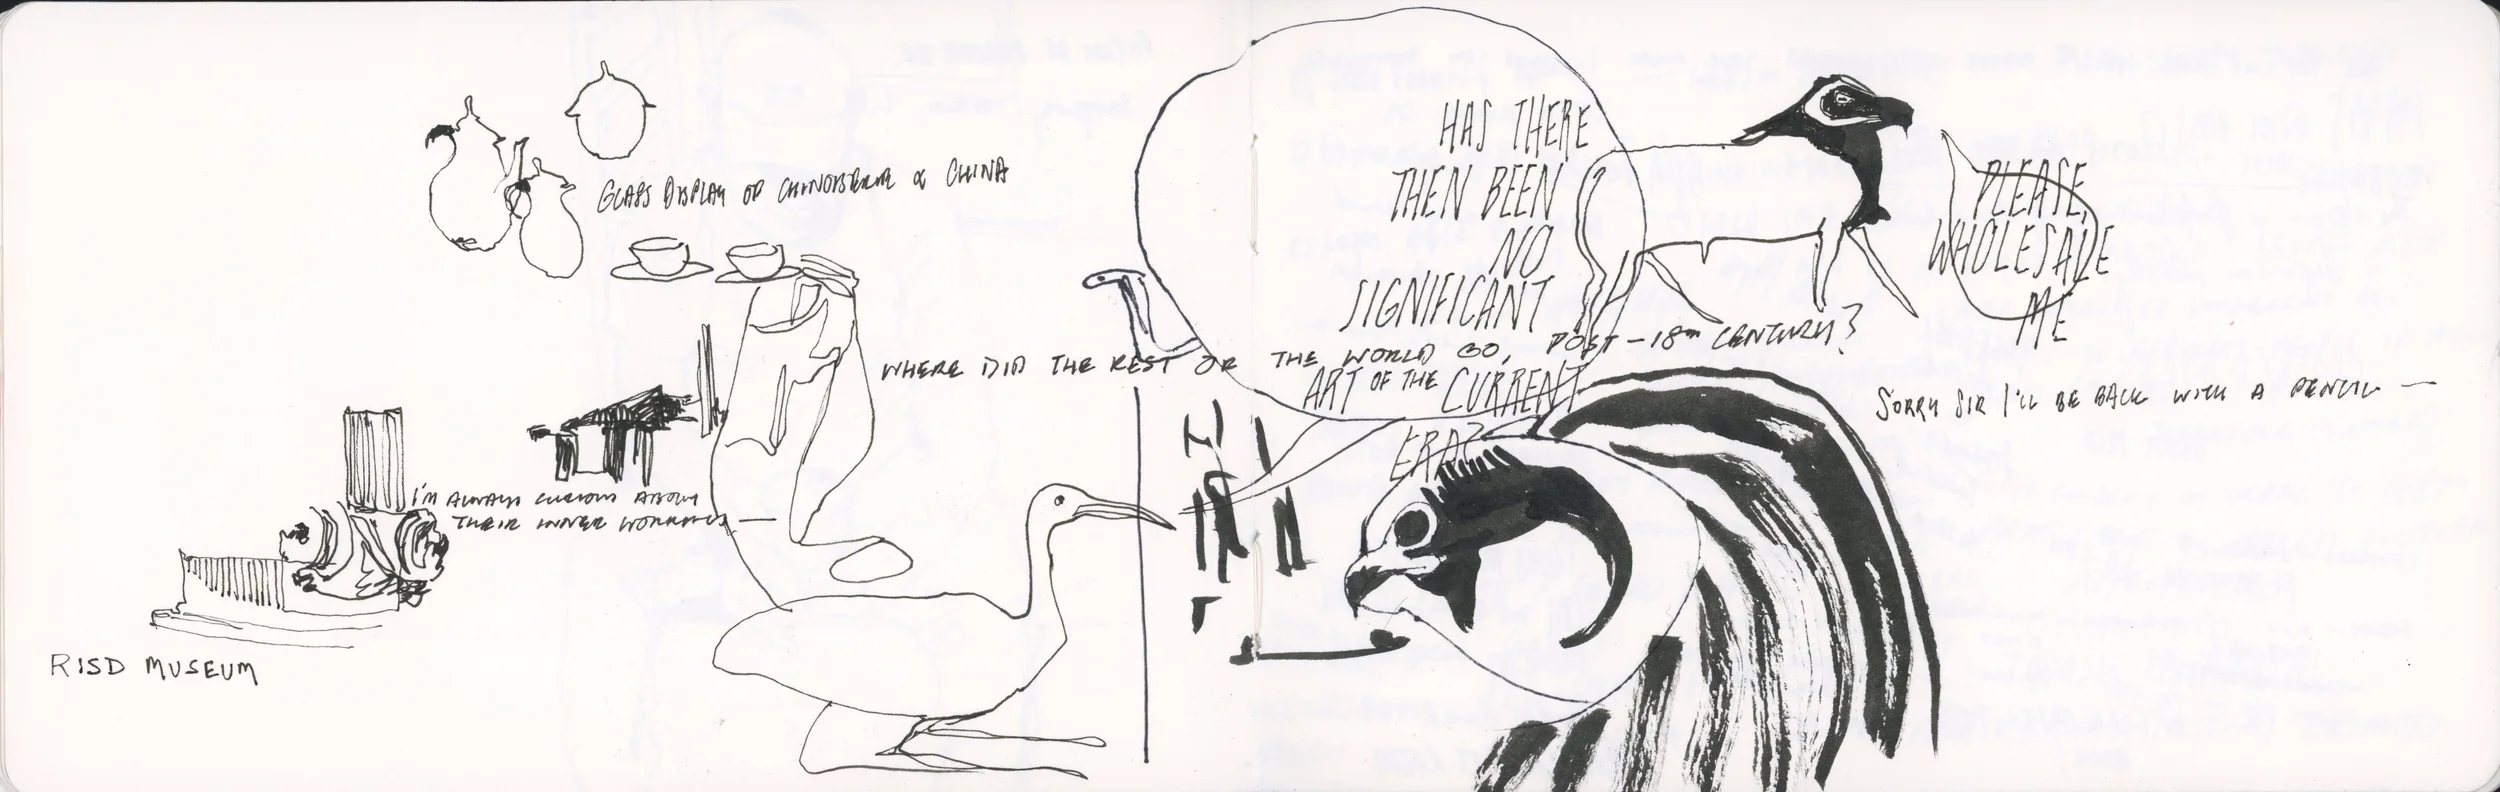 GLASS DISPLAY OF CHINOISERIE & CHINA
I'M ALWAYS CURIOUS ABOUT
THEIR INNER WORKINGS —
RISD MUSEUM
WHERE DID THE REST OF THE WORLD GO, POST-18TH CENTURY?
HAS THERE
THEN BEEN
NO
SIGNIFICANT
ART OF THE CURRENT
ERA?
PLEASE,
WHOLESALE
ME
SORRY SIR I'LL BE BACK WITH A PENCIL —